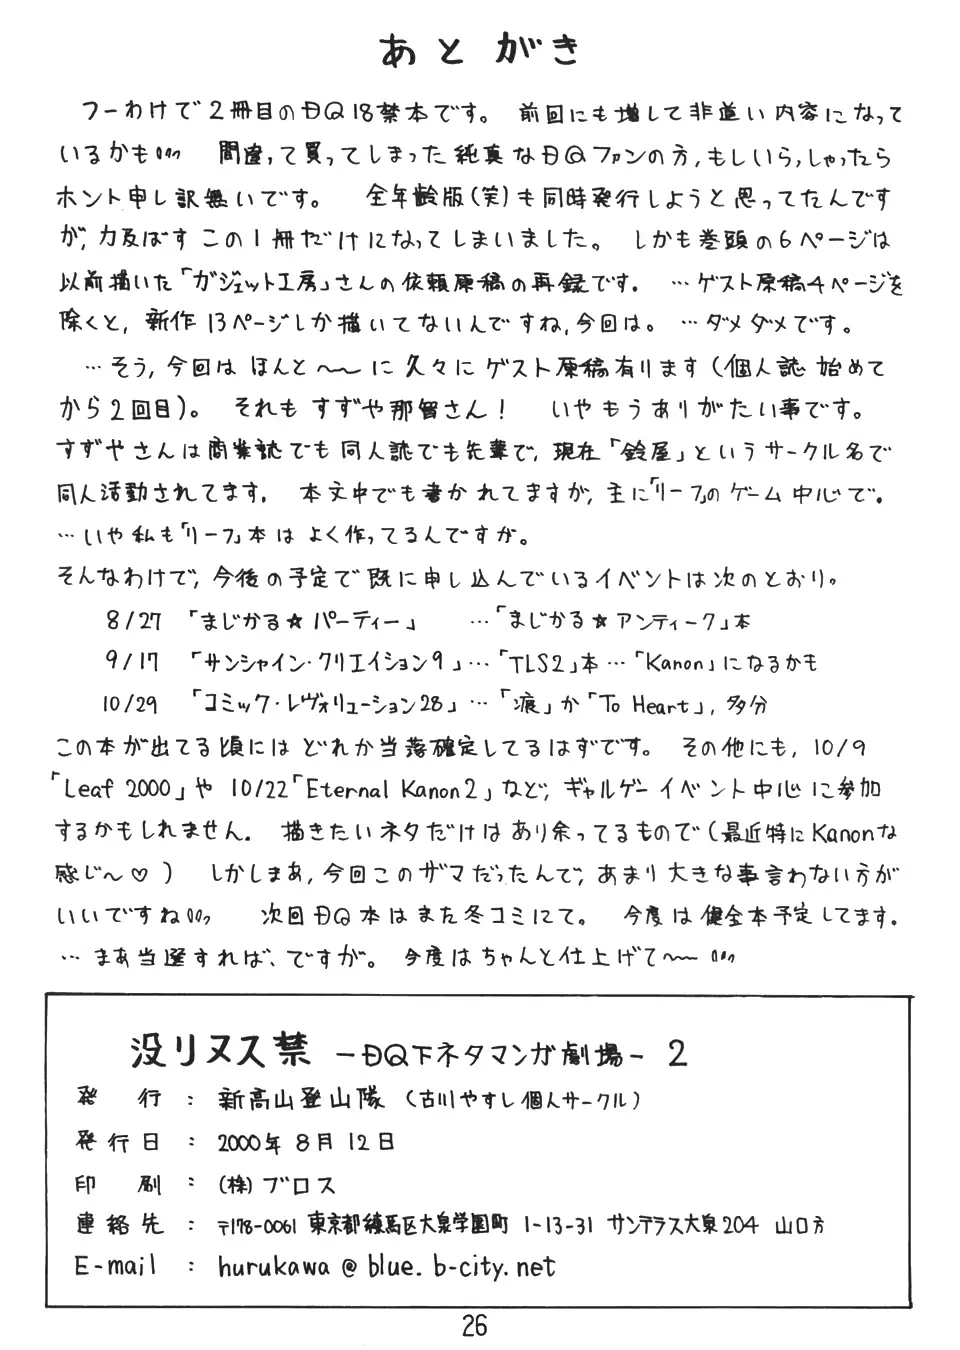 あとがき
つーわけで2冊目のDQ18禁本です。 前回にも増して非道い内容になって
いるかも… 間違って買ってしまった純真なDQファンの方,もしいらっしゃったら
ホント申し訳無いです。 全年齢版(笑)も同時発行しようと思ってたんです
が,力及ばずこの1冊だけになってしまいました。 しかも巻頭の6ページは
以前描いた「ガジェット工房」さんの依頼原稿の再録です。 …ゲスト原稿4ページを
除くと,新作13ページしか描いてないんですね,今回は。 …ダメダメです。
…そう,今回はほんと〜〜に久々にゲスト原稿有ります(個人誌始めて
から2回目)。 それもすずや那智さん! いやもうありがたい事です。
すずやさんは商業誌でも同人誌でも先輩で,現在「鈴屋」というサークル名で
同人活動されてます。 本文中でも書かれてますが,主に「リーフ」のゲーム中心で。
…いや私も「リーフ」本はよく作ってるんですが。
そんなわけで,今後の予定で既に申し込んでいるイベントは次のとおり。
8/27 「まじかる☆パーティー」 …「まじかる☆アンティーク」本
9/17 「サンシャイン・クリエイション9」…「TLS2」本…「Kanon」になるかも
10/29 「コミック・レヴォリューション28」…「痕」か「To Heart」,多分
この本が出てる頃にはどれか当落確定してるはずです。 その他にも,10/9
「Leaf 2000」や10/22「Eternal Kanon2」など,ギャルゲーイベント中心に参加
するかもしれません。 描きたいネタだけはあり余ってるもので(最近特にKanonな
感じ〜♡) しかしまあ,今回このザマだったんで,あまり大きな事言わない方が
いいですね… 次回DQ本はまた冬コミにて。 今度は健全本予定してます。
…まあ当選すれば、ですが。 今度はちゃんと仕上げて〜〜…
没リヌス禁 -DQ下ネタマンガ劇場- 2
発行 : 新高山登山隊 (古川やすし個人サークル)
発行日 : 2000年8月12日
印刷 : (株)ブロス
連絡先 : 〒178-0061 東京都練馬区大泉学園町 1-13-31 サンテラス大泉204 山口方
E-mail : hurukawa@blue.b-city.net
26